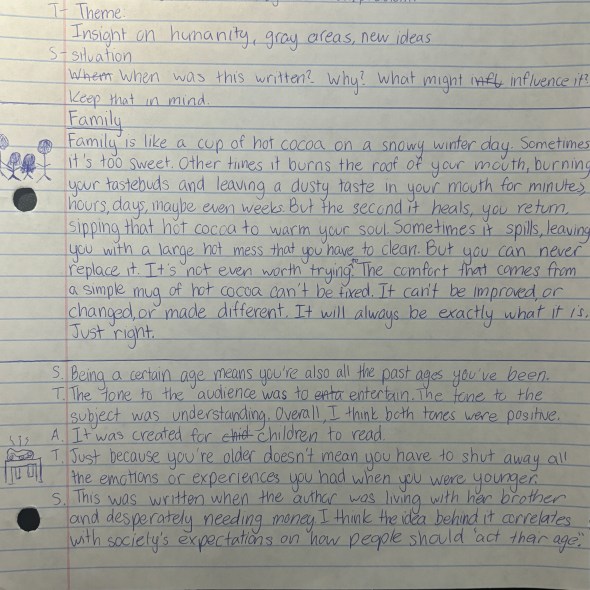 T- Theme.
Insight on humanity, gray areas, new ideas
S- situation
Whem When was this written? Why? What might infl influence it?
Keep that in mind.
Family
Family is like a cup of hot cocoa on a snowy winter day. Sometimes
it's too sweet. Other times it burns the roof of your mouth, burning
your tastebuds and leaving a dusty taste in your mouth for minutes,
hours, days, maybe even weeks. But the second it heals, you return,
sipping that hot cocca to warm your soul. Sometimes it spills, leaving
you with a large hot mess that you have to clean. But you can never
replace it. It's not even worth trying. The comfort that comes from
a simple mug of hot cocoa can't be fixed. It can't be improved, or
changed, or made different. It will always be exactly what it is.
Just right.
S. Being a certain age means you're also all the past ages you've been.
T. The tone to the audience was to enta entertain. The tone to the
subject was understanding. Overall, I think both tones were positive.
A. It was created for chid children to read.
T. Just because you're older doesn't mean you have to shut away all
the emotions or experiences you had when you were younger.
S. This was written when the author was living with her brother
and desperately needing money. I think the idea behind it correlates
with society's expectations on how people should "act their age."